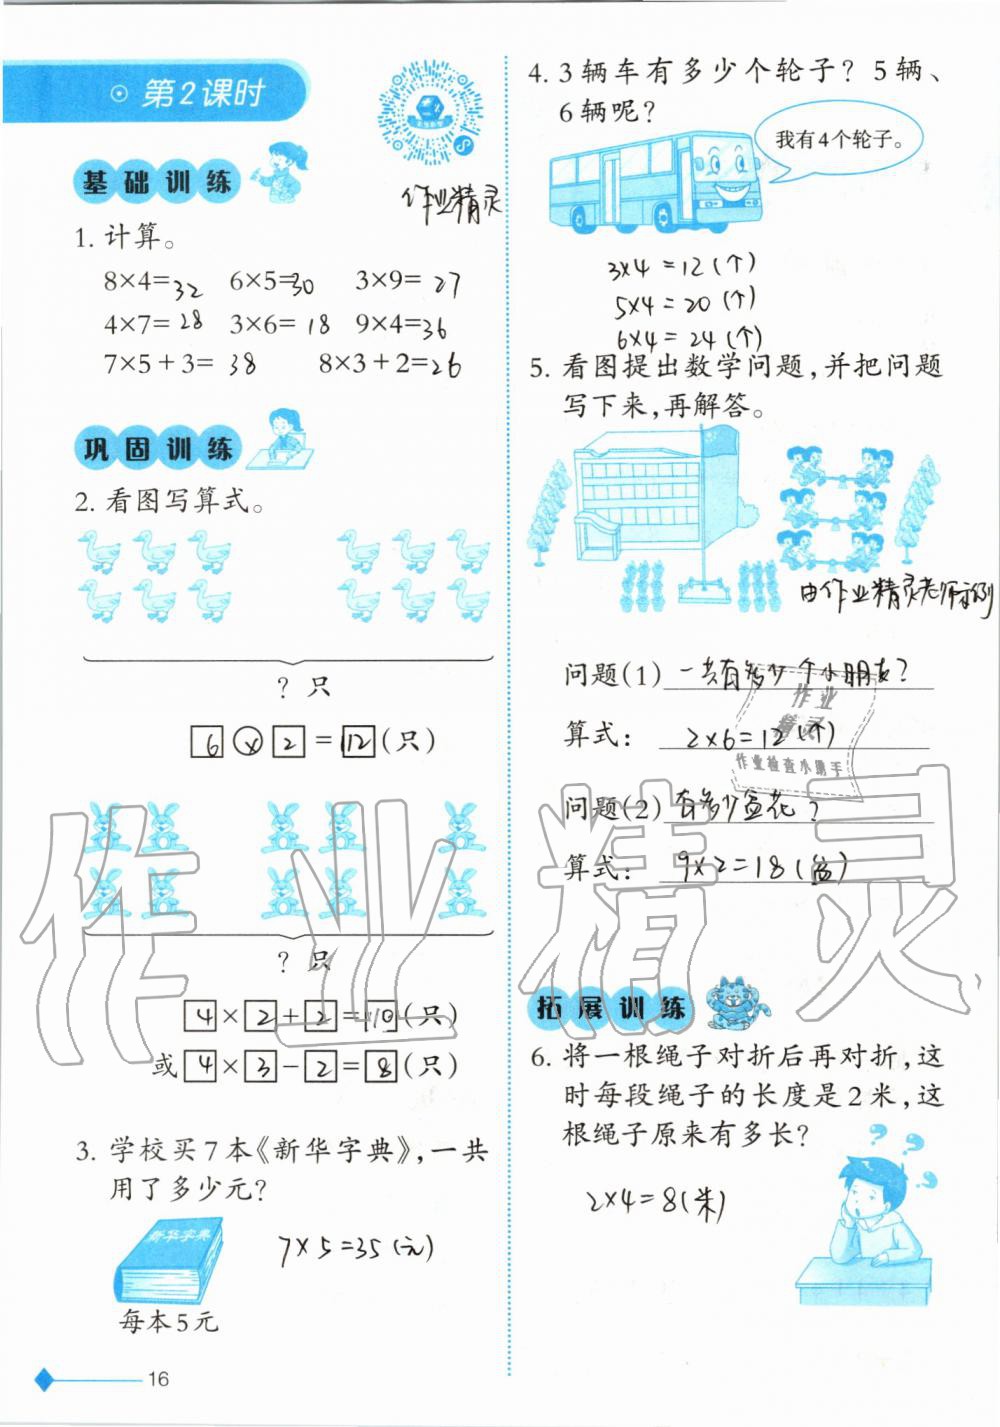 第2课时
作业精灵
基础训练
1. 计算。
8×4=32 6×5=30 3×9=27
4×7=28 3×6=18 9×4=36
7×5+3=38 8×3+2=26
巩固训练
2. 看图写算式。
? 只
6 × 2 = 12 (只)
? 只
4 × 2 + 2 = 10 (只)
或 4 × 3 - 2 = 8 (只)
3. 学校买7本《新华字典》,一共
用了多少元?
新华字典
7×5=35(元)
每本5元
16
4. 3辆车有多少个轮子? 5辆、
6辆呢?
我有4个轮子。
3×4=12(个)
5×4=20(个)
6×4=24(个)
5. 看图提出数学问题,并把问题
写下来,再解答。
由作业精灵老师示例
问题(1) 一共有多少个小朋友?
算式: 2×6=12(个)
问题(2) 有多少盆花?
算式: 9×2=18(盆)
作业
精灵
作业检查小助手
拓展训练
6. 将一根绳子对折后再对折,这
时每段绳子的长度是2米,这
根绳子原来有多长?
2×4=8(米)
作业精灵